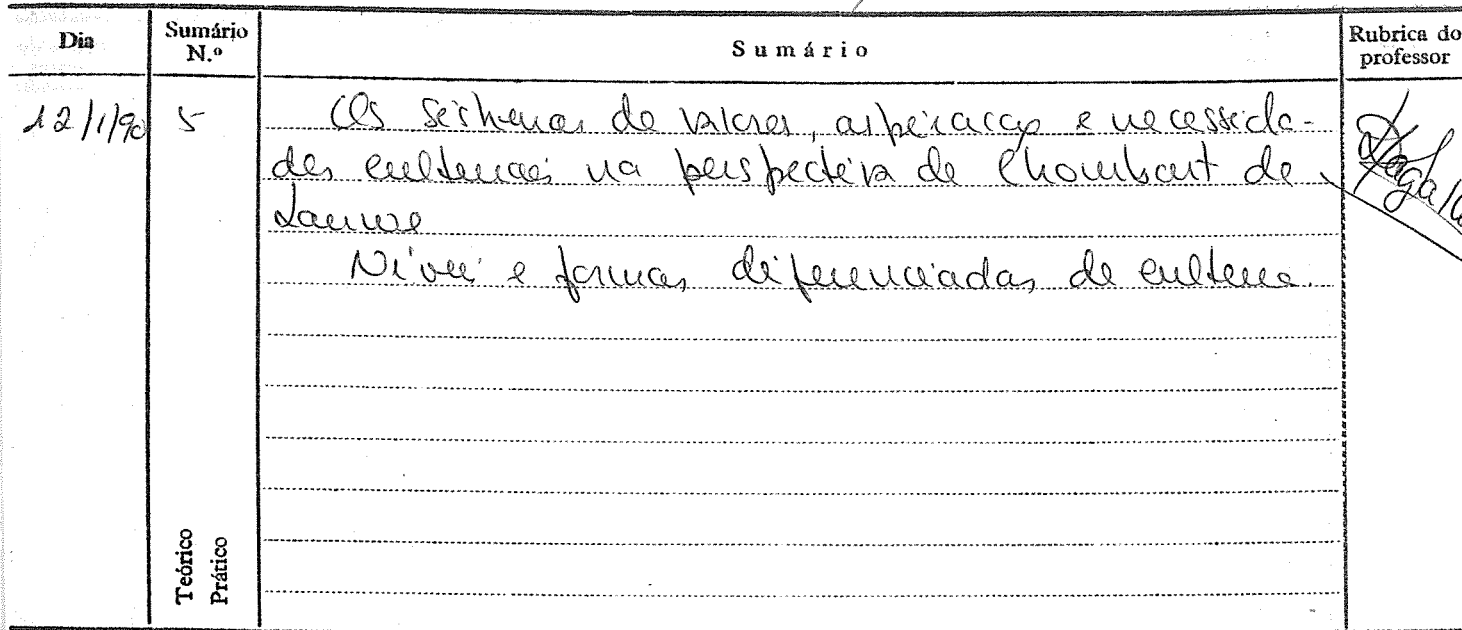 Dia Sumário N.º Sumário Rubrica do professor
12/1/90 5 Os sistemas de valores, aspirações e necessida-
des culturais na perspectiva de Chombart de
Lauwe
Níveis e formas diferenciadas de cultura.
Teórico
Prático